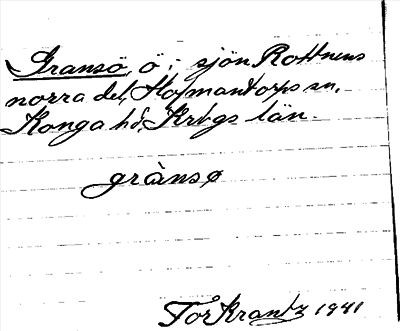 Gransö, ö i sjön Rottnens
norra del, Hofmantorps sn,
Konga hd, Krbgs län.
grànsø
Tor Krantz 1941